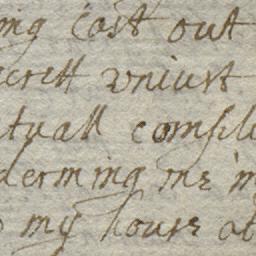 ing cast out
ecrett vniust
tuall comfil
derming me m
my house at